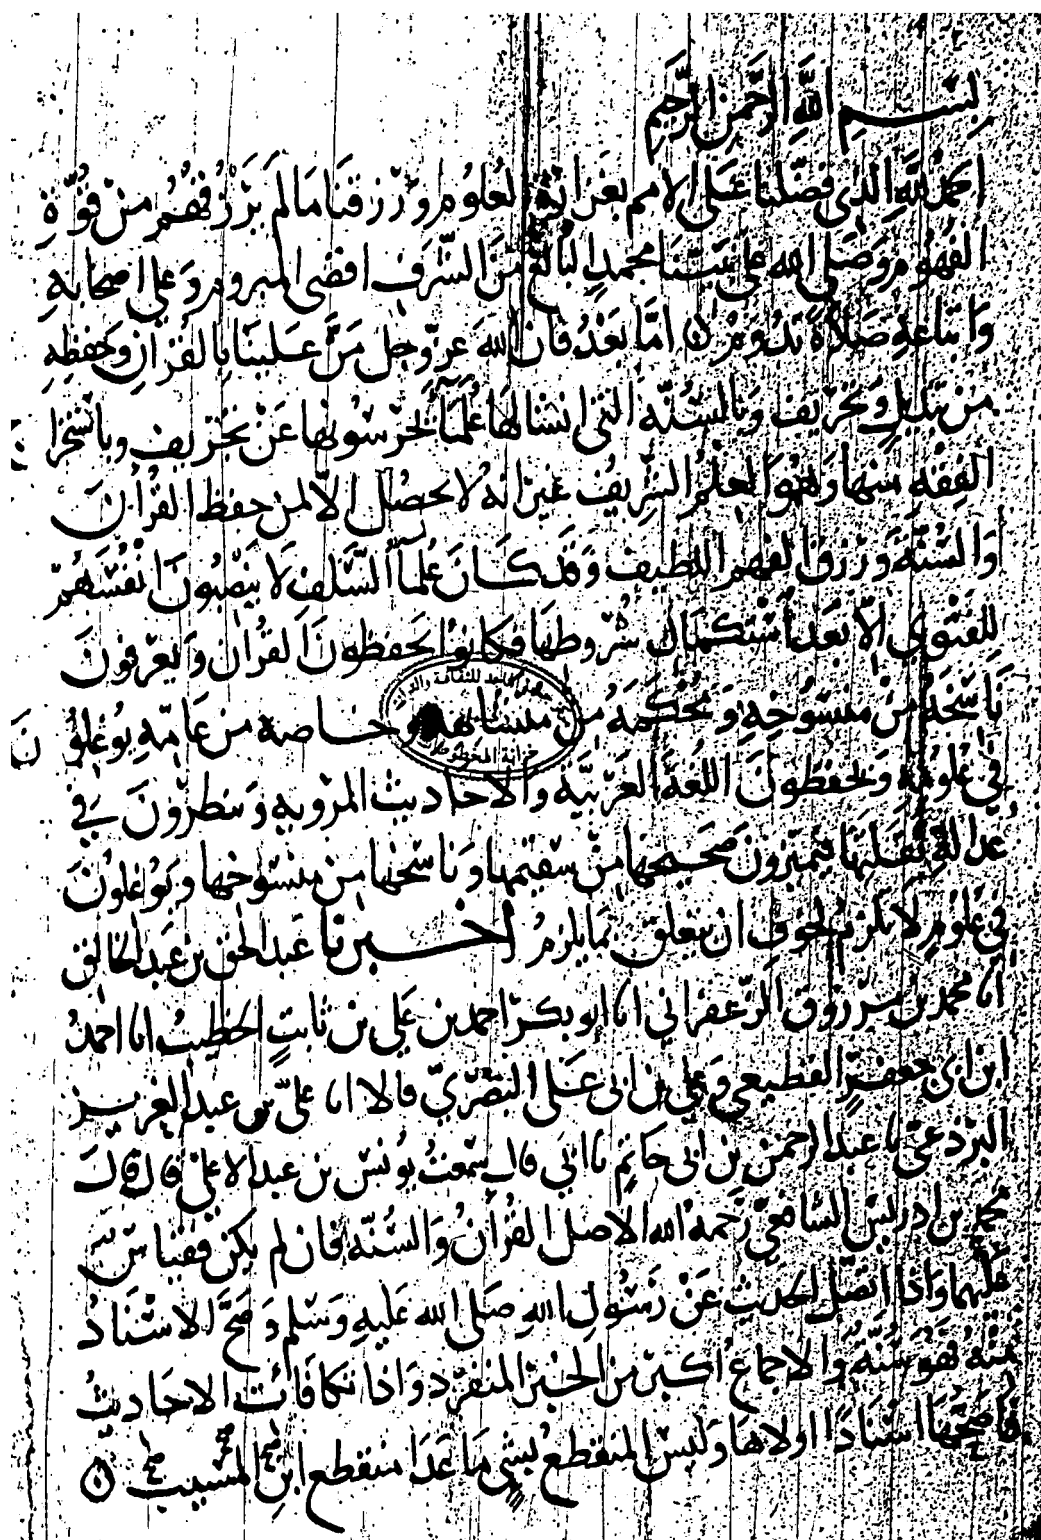 بسم الله الرحمن الرحيم
الحمد لله الذي فضلنا على الامم بغزاثة العلوم ورزقنا ما لم يرزقهم من قوة
الفهوم وصلى الله على نبينا محمد البالغ من الشرف اقصى المروم وعلى اصحابه
واتباعه صلاة تدوم اما بعد فان الله عز وجل من علينا بالقرآن وحفظه
من تبديل وتحريف وبالسنة التي انشا لها علماء يحرسونها عن تحريف وباستخراج
الفقه منها وهو العلم الشريف غير انه لا يحصل الا لمن حفظ القرآن
والسنة ورزق الفهم اللطيف وقد كان علماء السلف لا ينصبون انفسهم
للفتوى الا بعد استكمال شروطها فكانوا يحفظون القرآن ويعرفون
ناسخه من منسوخه ومحكمه من متشابهه وخاصه من عامه يوغلون
في علومه ويحفظون اللغة العربية والاحاديث المروية وينظرون في
عدالة نقلتها فيميزون صحيحها من سقيمها وناسخها من منسوخها ويوغلون
في علوم لا تلزم لخوف ان يتعلق بما يلزم اخبرنا عبد الحق بن عبد الخالق
انا محمد بن مرزوق الزعفراني انا ابو بكر احمد بن علي بن ثابت الخطيب انا احمد
ابن ابي جعفر القطيعي وعلي بن ابي علي البصري قالا انا علي بن عبد العزيز
البرذعي نا عبد الرحمن بن ابي حاتم نا ابي قال سمعت يونس بن عبد الاعلى قال قال
محمد بن ادريس الشافعي رحمه الله الاصل القرآن والسنة فان لم يكن فقياس
عليهما واذا اتصل الحديث عن رسول الله صلى الله عليه وسلم وصح الاسناد
منه فهو سنة والاجماع اكبر من الخبر المنفرد واذا تكافأت الاحاديث
فاصحها اسنادا اولاها وليس المنقطع بشي ما عدا منقطع ابن المسيب